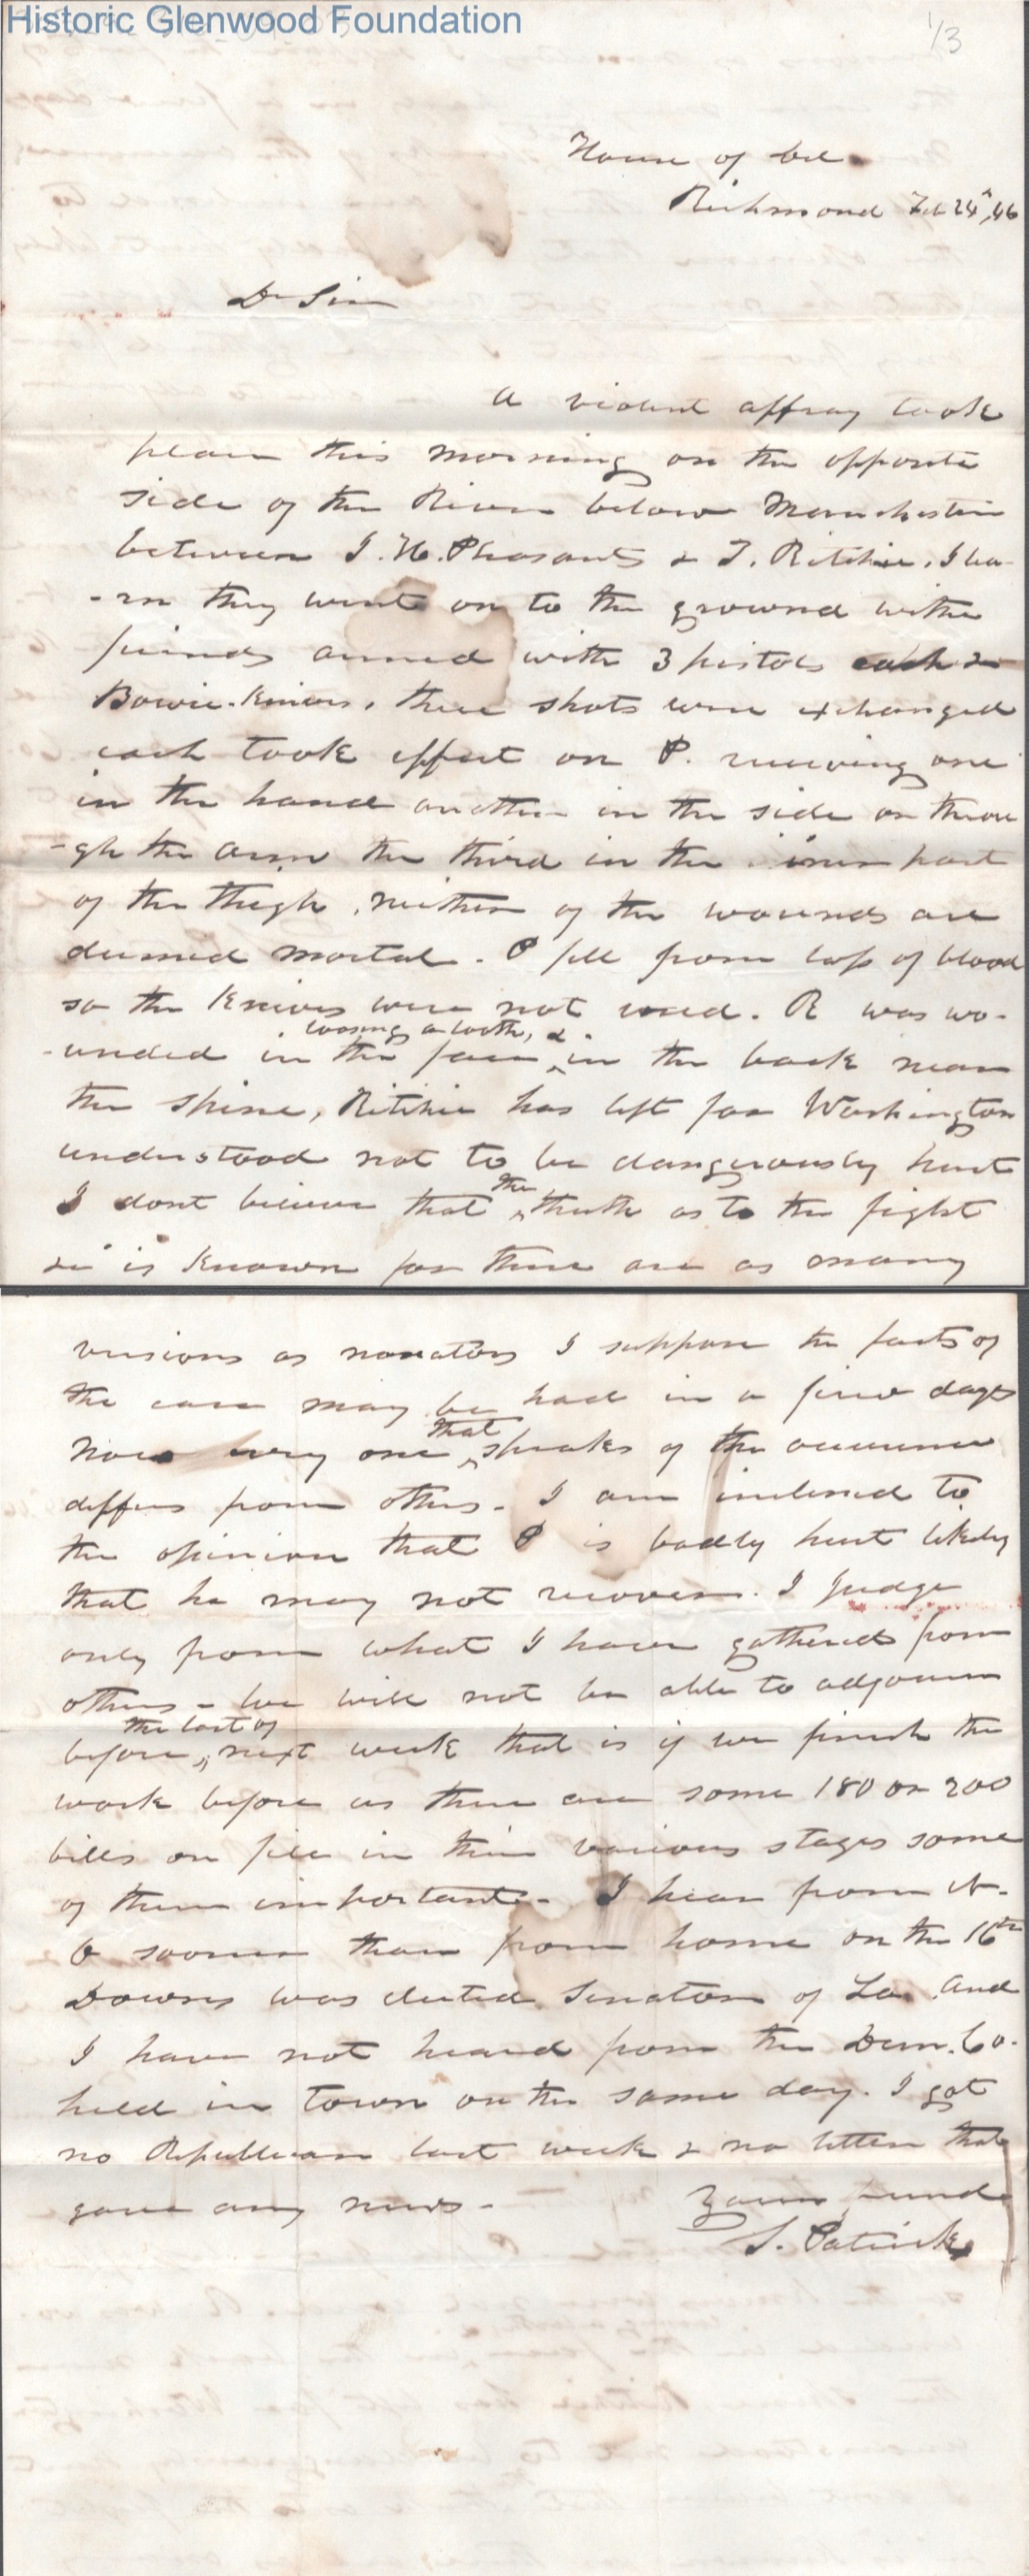 Historic Glenwood Foundation
1/3
House of Del
Richmond Feb 24th, 46
Dr Sir
A violent affray took
place this morning on the opposite
side of the River below Manchester
between J. H. Pleasants & T. Ritchie. I lea-
-rn they went on to the ground withe
friends armed with 3 pistols each &
Bowie-Knives, three shots were exchanged
each took effect on P. receiving one
in the hand another in the side or throu
-gh the arm the third in the iner part
of the thigh, neither of the wounds are
deemed mortal. P fell from loss of blood
so the Knives were not used. R was wo-
loosing a tooth, &
-unded in the face in the back near
the spine, Ritchie has left for Washington
understood not to be dangerously hurt
the
I dont believe that truth as to the fight
is Known for there are as many
versions as narators I suppose the facts of
the case may be had in a few days
that
Now every one speaks of the occurrence
differs from others. I am inclined to
the opinion that P is badly hurt likely
that he may not recover. I Judge
only from what I have gathered from
others - we will not be able to adjourn
the last of
before next week that is if we finish the
work before us there are some 180 or 200
bills on file in their various stages some
of them important - I hear from N.
O sooner than from home on the 16th
Downs was elected Senator of La. and
I have not heard from the Dem. Co.
held in town on the same day. I got
no Republican last week & no letter that
gave any news -
Your friend
S. Patrick